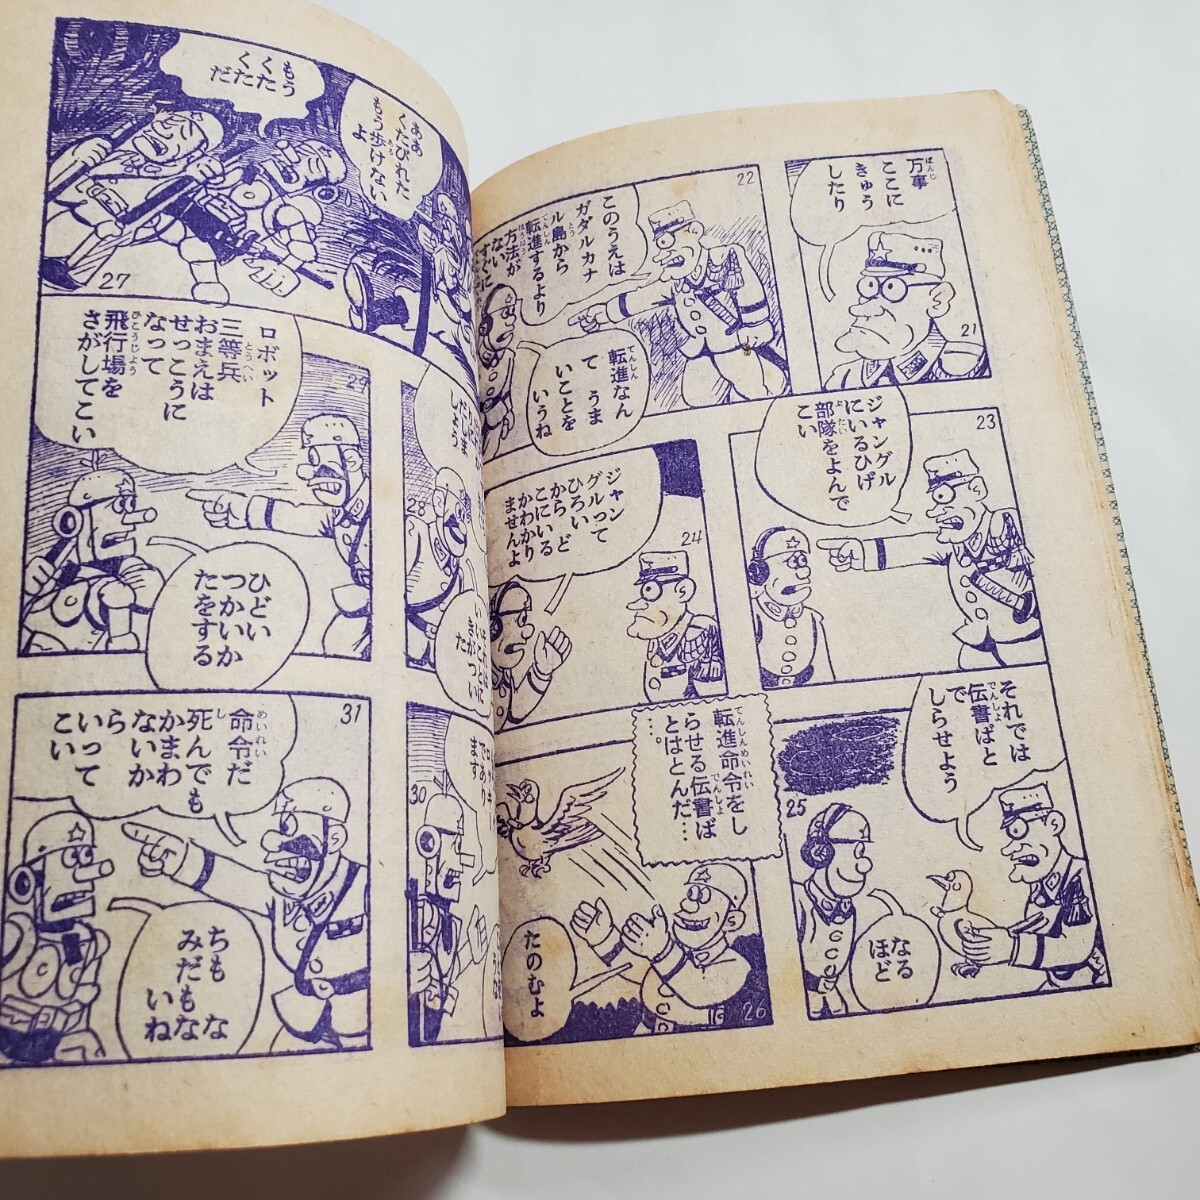 万事
ばんじ
ここに
きゅう
したり
21
22
このうえは
ガダルカナ
ル島から
とう
転進するより
てんしん
方法が
ほうほう
ない
すぐに
転進なん
てんしん
て うま
いことを
いうね
23
ジャングル
にいるひげ
部隊をよんで
こい
24
ジャン
グルって
ひろい
から ど
こにいる
かわかり
ませんよ
それでは
伝書ばと
でんしょ
で
しらせよう
25
なる
ほど
転進命令をし
てんしんめいれい
らせる伝書ば
でんしょ
とはとんだ…
…。
たのむよ
26
ああ
くたびれた
もう歩けない
ある
よ
もう
くたく
ただ
27
28
29
ロボット
三等兵
とうへい
おまえは
せっこうに
なって
飛行場を
ひこうじょう
さがしてこい
ひどい
つかいか
たをする
30
であり
ます
31
命令だ
めいれい
死んでも
し
かまわ
ないか
ら
いって
こい
ちもな
みだもな
いね